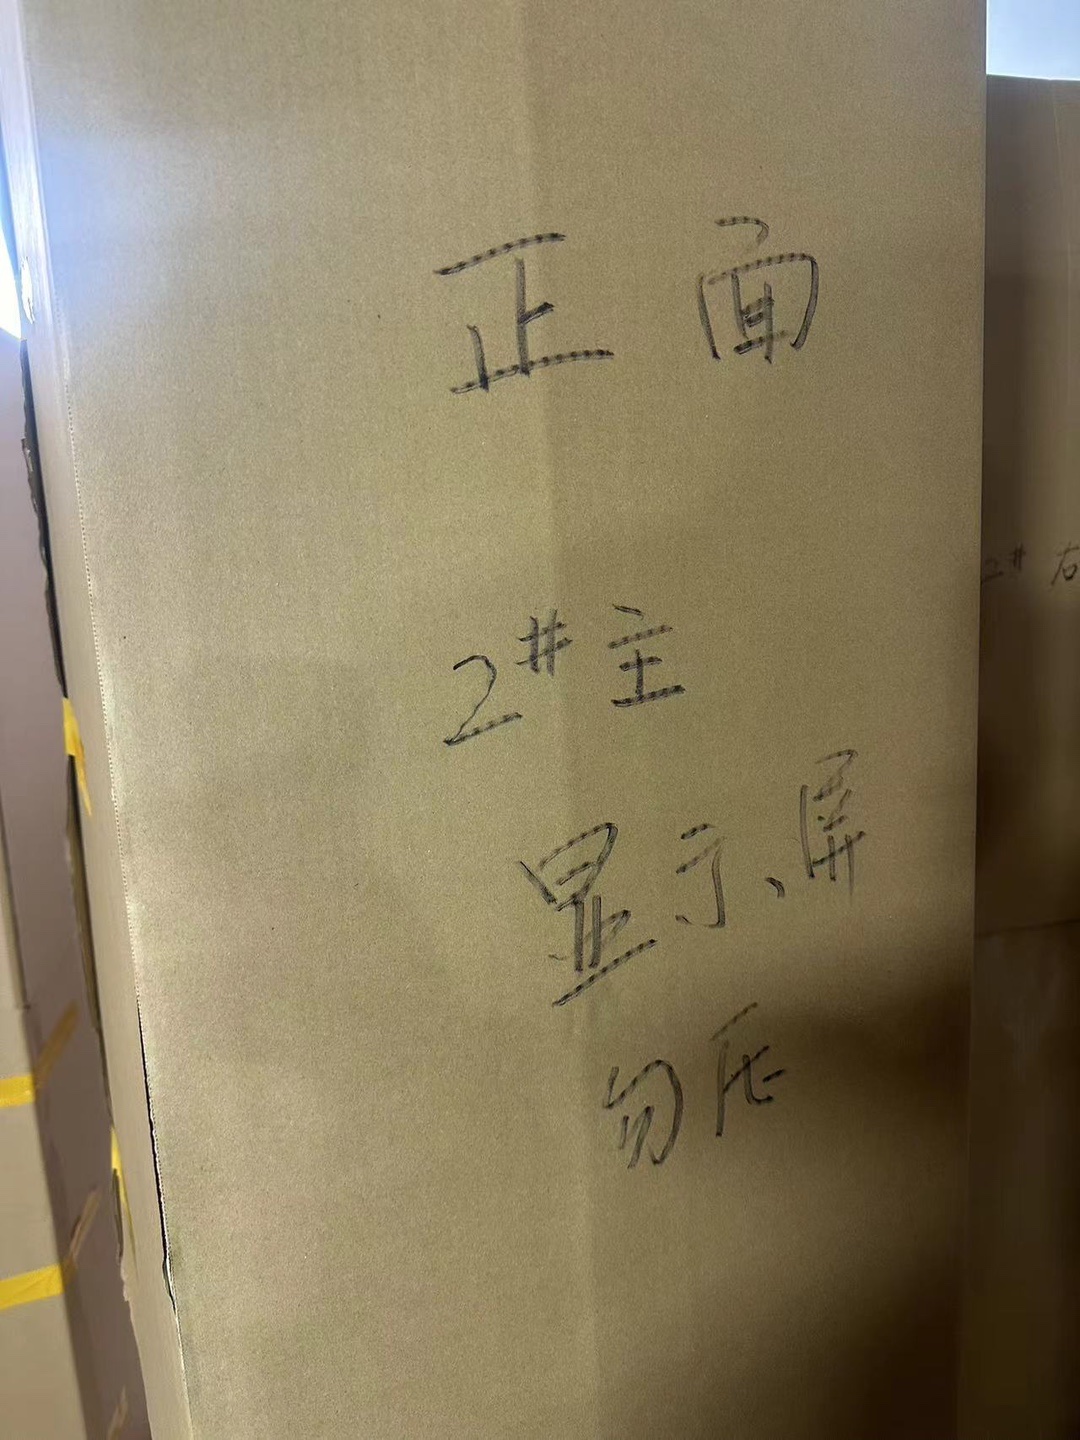 正面
2#主
显示屏
勿压
2# 右